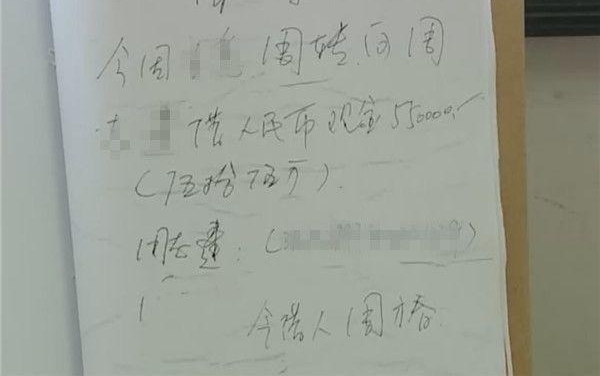 今因 周转,向周
借人民币现金550000.-
(伍拾伍万).
周志
今借人周